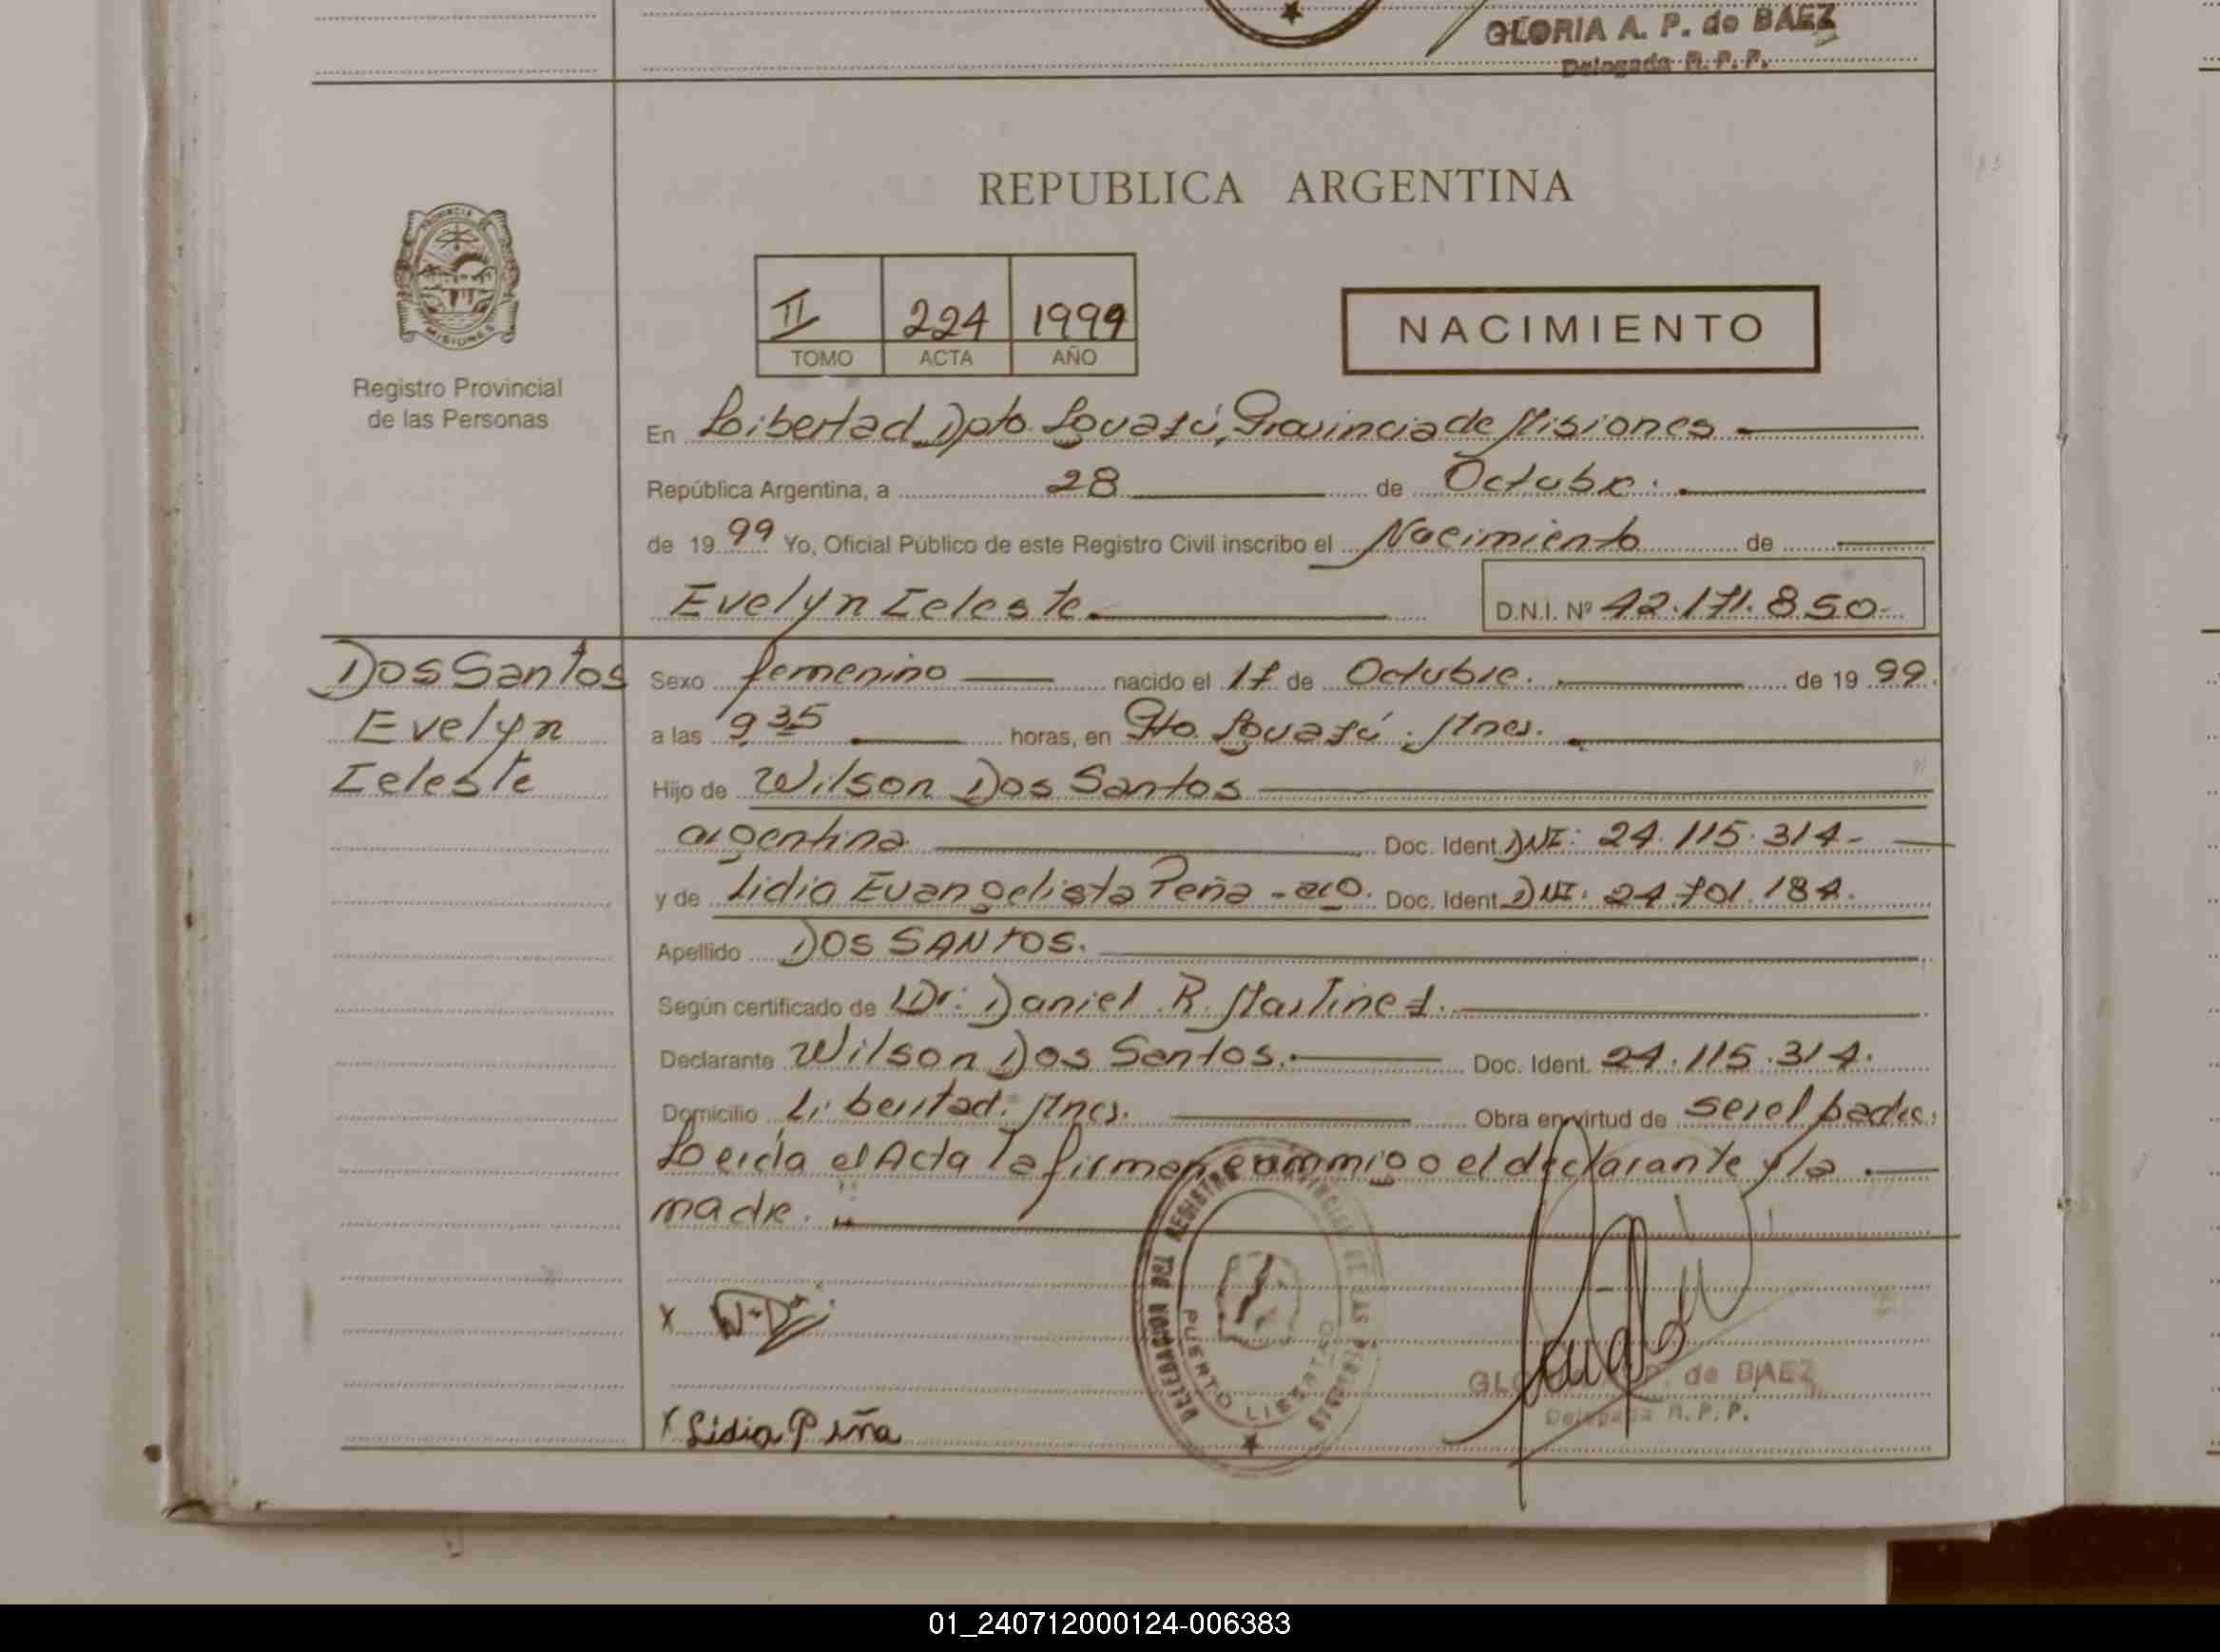 GLORIA A. P. de BAEZ
Delegada R. P. P.
REPUBLICA ARGENTINA
PROVINCIA DE
MISIONES
Registro Provincial
de las Personas
II 224 1999
TOMO ACTA AÑO
NACIMIENTO
En Libertad Dpto. Iguazú, Provincia de Misiones
República Argentina, a 28 de Octubre.
de 19 99 Yo, Oficial Público de este Registro Civil inscribo el Nacimiento de
Evelyn Celeste. D.N.I. Nº 42.171.850.
Dos Santos
Evelyn
Celeste
Sexo femenino nacido el 17 de Octubre. de 19 99
a las 9 35 horas, en Pto. Iguazú. Mnes.
Hijo de Wilson Dos Santos
argentina Doc. Ident. DNI: 24.115.314-
y de Lidia Evangelista Peña - arg. Doc. Ident. DNI: 24.701.184.
Apellido DOS SANTOS.
Según certificado de Dr: Daniel R. Martinez.
Declarante Wilson Dos Santos. Doc. Ident. 24.115.314.
Domicilio Libertad. Mnes. Obra en virtud de ser el padre.
Leída el Acta la firman conmigo el declarante y la
madre.
DELEGACION REGISTRO PROVINCIAL DE LAS PERSONAS
PUERTO LIBERTAD
X
GLORIA A. P. de BAEZ
Delegada R. P. P.
X Lidia Peña
01_240712000124-006383